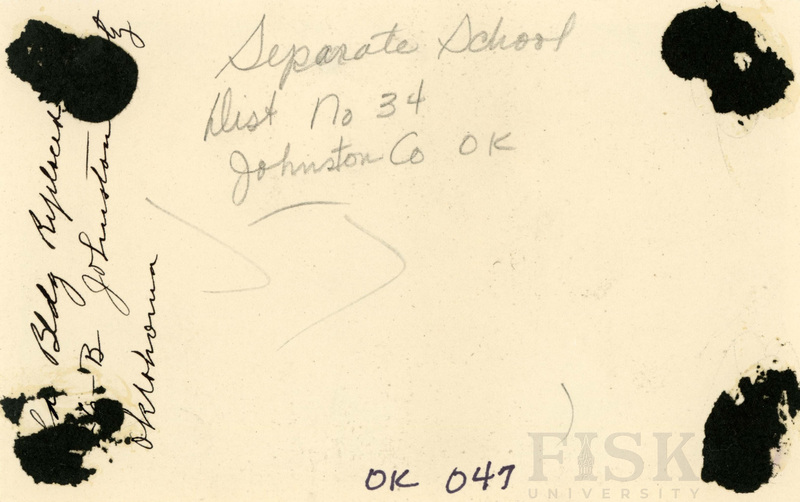 Separate School
Dist No 34
Johnston Co OK
Bldg Replaced
B Johnston
Oklahoma
OK 047
FISK
UNIVERSITY